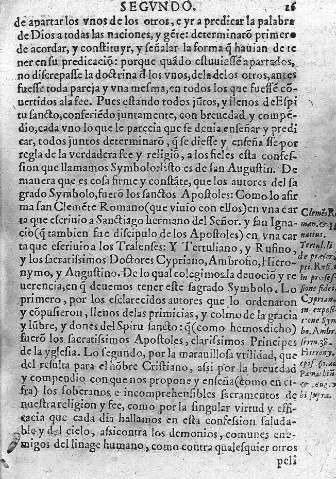 SEGVNDO. 26
de apartar los vnos de los otros, e yr a predicar la palabra
de Dios a todas las naciones, y gẽte: determinarõ primero
de acordar, y constituyr, y señalar la forma q̃ hauian de te
ner en su predicacion: porque quãdo estuuiessẽ apartados,
no discrepasse la doctrina d̃ los vnos, dela de los otros, antes
fuesse toda pareja y vna mesma, en todos los que fuessẽ cõ-
uertidos ala fee. Pues estando todos jũtos, y llenos del Espi
ritu sancto, confiriẽdo juntamente, con breuedad y compẽ-
dio, cada vno lo que le parecia que se deuia enseñar y predi
car, todos juntos determinarõ, q̃ se diesse y enseñasse por
regla de la verdadera fee y religiõ, a los fieles esta confes-
sion que llamamos Symbolo: esto es de san Augustin. De
manera que es cosa firme y constãte, que los autores del sa
grado Symbolo, fuerõ los sanctos Apostoles: Como lo afir
ma san Clemẽte Romano (que viuio con ellos) en vna car
ta que escriuio a Sanctiago hermano del Señor. y san Igna-
cio (q̃ tambien fue discipulo de los Apostoles) en vna car
ta que escriuio a los Tralenses: Y Tertuliano, y Rufino
y los sacratissimos Doctores Cypriano, Ambrosio, Hiero-
nymo, y Augustino. De lo qual colegimos la deuociõ y re
uerencia, en q̃ deuemos tener este sagrado Symbolo. Lo
primero, por los esclarecidos autores que lo ordenaron
y cõpusieron, llenos de las primicias, y colmo de la gracia
y lũbre, y dones del Spiritu sancto: q̃ (como hemos dicho)
fuerõ los sacratissimos Apostoles, clarissimos Principes
de la yglesia. Lo segundo, por la marauillosa vtilidad, que
del resulta para el hõbre Cristiano, assi por la breuedad
y compendio con que nos propone y enseña (como en ci-
fra) los soberanos e incomprehensibles sacramentos de
nuestra religion y fee, como por la singular virtud y effi-
cacia que cada dia hallamos en esta confession saluda-
ble y del cielo, assi contra los demonios, comunes ene-
migos del linage humano, como contra qualesquier otros
peli
Clemẽs Ro
Tertul. li
Cyprian.
Hierony.